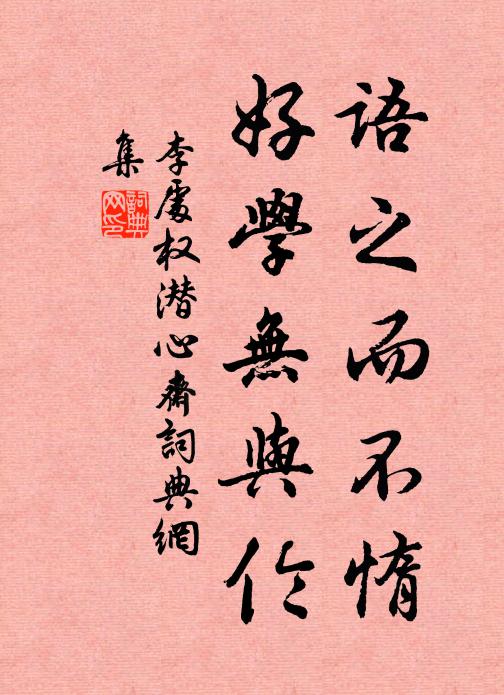 語之而不惰
好學無與伦
李處权潜心齋詞典網
集
詞典
网印